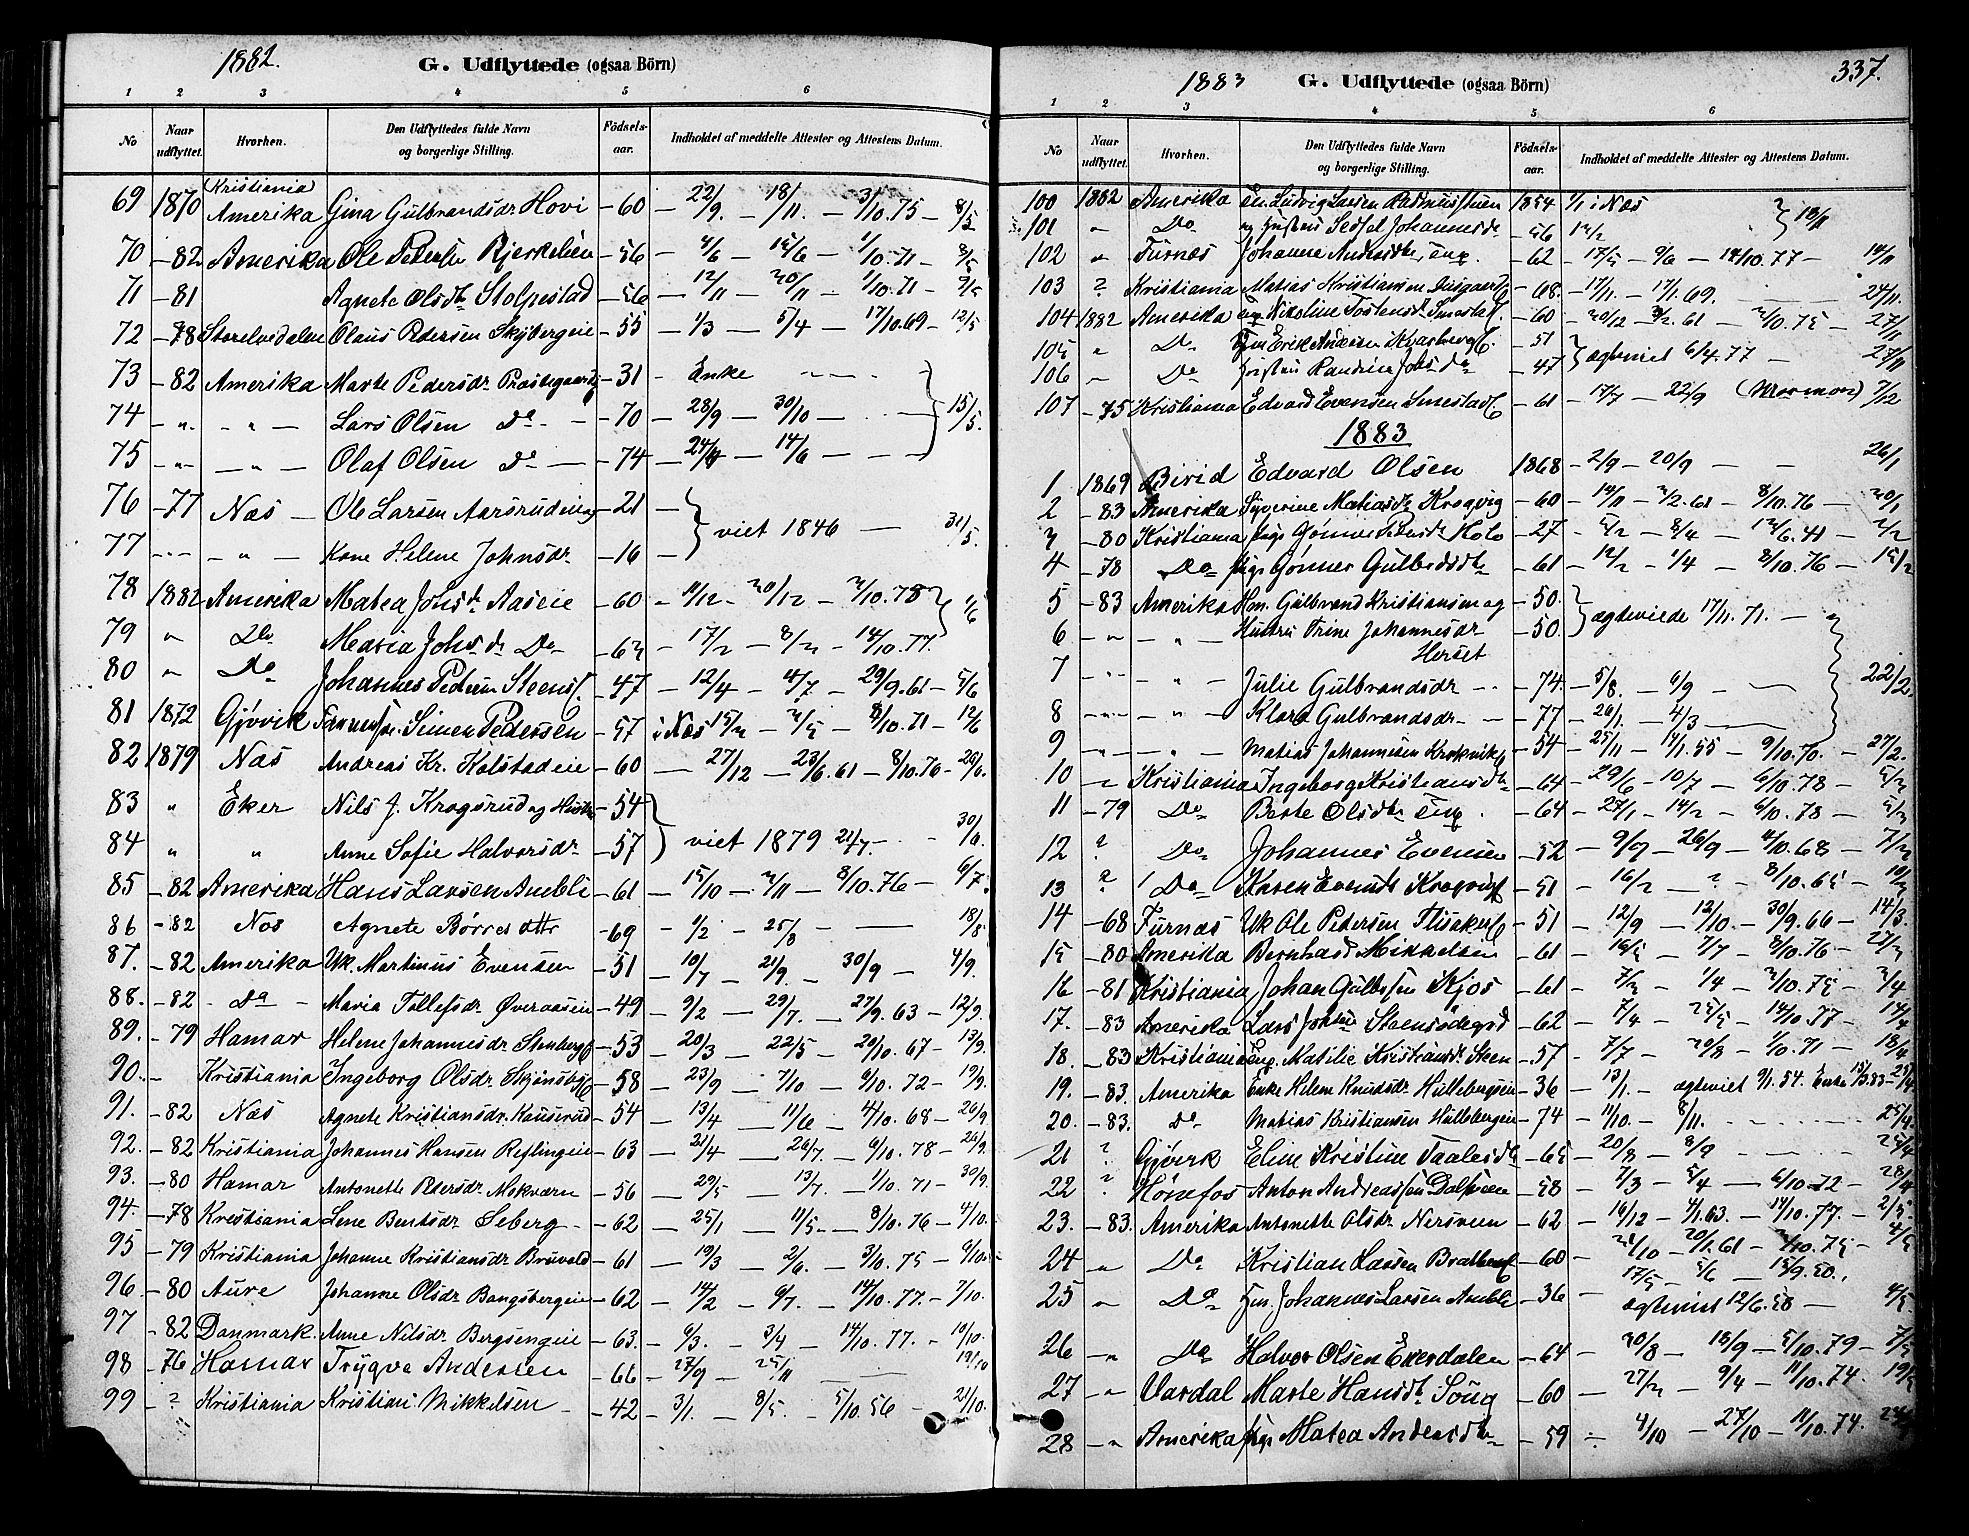 1882.
G. Udflyttede (ogsaa Börn)
1 2 3 4 5 6
No | Naar udflyttet. | Hvorhen. | Den Udflyttedes fulde Navn og borgerlige Stilling. | Födsels-aar. | Indholdet af meddelte Attester og Attestens Datum.
69 1870 (Kristiania) Amerika Gina Gulbrandsdr. Hovi -60 - 22/9. - 18/11. - 31/10.75 - 8/5
70 -82 Amerika Ole Pedersen Bjerkelien -56 - 4/6 - 15/6 - 1/10.71 -
71 -81 Agnete Olsdtr Stolpestad -56 - 12/11 - 20/11 - 1/10.71 -
72 -78 Storelvedalen Olaus Pedersen Skybergeie -55 - 1/3 - 5/4 - 17/10.69 - 12/5
73 -82 Amerika Marte Pedersdr. Prestegaards -31 - Enke
74 - " - - " - Lars Olsen Do - -70 - 28/9 - 30/10 - 15/5.
75 - " - - " - Olaf Olsen Do - -74 - 14/6 -
76 -77 Næs - Ole Larsen Aasrudeie -21 - viet 1846 - 31/5.
77 - " - - " - Kone Helene Johnsdr. -16 -
78 1882 Amerika Matea Johsdr Aaseie -60 - 11/12 - 20/12 - 2/10.78
79 " Do Maria Johsdr Do - 17/2 - 8/2 - 14/10.77.
80 " Do Johannes Pedersen Steens -47 - 12/4 - 4/7 - 29/9.61 - 5/6
81 1872 Gjøvik Simen Pedersen -57 i Næs - 8/10.71 - 12/6
82 1879 Næs Andreas Kr. Holstadeie -60 - 27/12 - 23/6.61 - 8/10.76 -
83 " Eker Nils J. Krogsrud og Hustru -54
84 " " Anne Sofie Halvorsdr. -57 viet 1879 21/7. - 30/6.
85 -82 Amerika Hans Larsen Ambli -61 - 15/10 - 2/11 - 8/10.76 - 6/7.
86 -82 Næs Agnete Børresdttr -69 - 1/2 - 25/8 - 18/8
87. -82 Amerika Uk. Martinus Evensen -51 - 10/7 - 21/9. - 30/9 - 4/9.
88. -82 - Do - Maria Tollefsdr. Øveraasen -49 - 9/2 - 29/7. - 27/9.63 - 12/9.
89. -79 Hamar Helene Johannesdr. Stenberg -53 - 20/3 - 22/5 - 20/10.67 - 13/9.
90. - Kristiania Ingeborg Olsdr. Skjønsby -58 - 23/9 - 7/10 - 6/10.72 - 19/9.
91. -82 Næs Agnete Kristiansdr. Kauserud -54 - 13/4 - 11/6 - 4/10.68 - 26/9.
92. -82 Kristiania Johannes Hansen Reflingeie -63 - 21/4 - 26/7. - 6/10.78 - 26/9.
93. -80 Hamar Antonette Pedersdr. Mokværn -56 - 29/5 - 13/7. - 1/10.71 - 30/9.
94. -78 Kristiania Lene Berntsdr. Seberg - -62 - 25/1 - 11/5 - 8/10.76 - 4/10.
95 -79 Kristiania Johanne Kristiansdr. Bruvold -61 - 19/3 - 2/6. - 3/10.75 - 6/10.
96. -80 Aure Johanne Olsdr. Bangsbergeie -62 - 14/2 - 6/7. - 14/10.77. - 7/10.
97 -82 Danmark. Anne Nilsdr. Bergsengeie -63. - 6/3. - 3/4 - 14/10.77. - 10/10.
98 -76 Hamar Trygve Andersen -66 - 27/9 - 25/11 - 19/10
99 - ? Kristiania Kristian Mikkelsen - -42 - 3/1. - 8/5. - 5/10.56 - 21/10.
1883
G. Udflyttede (ogsaa Börn)
337.
1 2 3 4 5 6
No | Naar udflyttet. | Hvorhen. | Den Udflyttedes fulde Navn og borgerlige Stilling. | Födsels-aar. | Indholdet af meddelte Attester og Attestens Datum.
100 1882 Amerika Ludvig Larsen Rasmusstuen 1854 1/1 i Næs
101 " Do og Hustru Sedsel Johannesdr. -56
102 " Furnæs Johanne Andersdtr, Eng. -62 - 17/5 - 9/6 - 14/10.77 -
103 ? Kristiania Matias Kristiansen -68. - 17/11. - 17/1.69. 24/11.
104 1882 Amerika Nikoline Tostensdr. Smestad -60 - 20/12 - 2/10.75 - 27/11
105 " Do Erik Andersen -51 ægteviet 6/4.77 - 27/11
106 - Do Hustru Randine -47
107 -75 Kristiania Edvard Evensen Smestad -61 - 17/7 - 22/9 (Mormon) 7/12
1883
1 1869 Birid Edvard Olsen 1868 - 2/9 - 20/9 - - 26/1
2 -83 Amerika Syverine Matiasdtr Krogvig -60 - 8/10.76 - 30/1
3 -80 Kristiania Pige Gønner Holo -27 - 8/4 - 12/6.41 - 2/2
4 -78 Do Pige Gønner Gulbrdsdtr -61 - 12/2 - 1/4 - 8/10.76 - 15/2
5 -83 Amerika Hm. Gulbrand Kristiansen og -50.
6 - " - " - Hustru Trine Johannesdr. -50 ægteviede 17/11.71. -
Herset
7 - " - " - Julie Gulbrandsdr - -74. - 5/8. - 6/9 - 22/2.
8 - " - " - Klara Gulbrandsdr - -77 - 26/1. - 4/3
9 - " - " - Matias Johannesen Krokvik -54 - 25/11 - 14/1.55 - 9/10.70. - 27/2.
10 - Kristiania Ingeborg Kristiansdtr -64 - 29/6 - 10/7 - 6/10.78 -
11 -79 Do Berte Olsdtr Eng. -64 - 27/1 - 14/2 - 6/10.78 -
12 ? Do Johannes Evensen -52 - 9/7 - 26/9 - 4/10.68 -
13 ? Do Karen Evensdtr Krogvig -51 - 16/2 - ? - 8/10.65 -
14 -68 Furnæs Uk Ole Pedersen Flisaker -51 - 12/9 - 12/10. - 30/9.66 - 14/3.
15 -80 Amerika Bernhard Mikkelsen -61 - 16/5 - 7/7 - 8/10.76 -
16 -81 Kristiania Johan Gulbrsen Kjos -61 - 1/4 - 2/10.75 - 2/4
17. -83 Amerika Lars Johsen Steensødegrd -62 - 7/4 - 25/5 - 14/10.77 - 14/4
18. -83 Kristiania Eng. Matilie Kristiansdr. Steen -57 - 7/7 - 20/8 - 1/10.71 - 18/4
19. -83. Amerika Enke Helene Knudsdr. Hullebergeie -36 - 13/1. - ægteviet 9/1.54. Enke 15/3.83 - 25/4
20. -83. Do Matias Kristiansen Hullebergeie -74 - 11/10. - 8/11. - 25/4.
21 ? Gjøvik Eline Kristine Taalesdtr -65 - 20/8 - 8/9 - 25/4
22 ? Hønefos Anton Andreassen -58 - 7/3 - 5/4 - 6/10.72 - 28/4
23. -83. Amerika Antonette Olsdr. Nersveen -62 - 16/12 - 4/1.63. - 14/10.77. - 2/5
24 " Do Kristian Larsen Bratberg -60 - 20/1.61 - 2/10.75 - 4/5
25 " Do Hm. Johannes Larsen Ambli -36 - 17/5 - 5/6 - 15/9.50.,
ægteviet 12/6.58 - 4/5
26 - " Do Halvor Olsen Ekerdalen -64 - 20/8 - 18/9 - 5/10.79 -
27 - " Vardal Marte Hansdtr. Soug -60 - 27/2 - 9/4 - 11/10.74.
28 - " Amerika Pige Matea Andersdtr -59 - 4/10 - 27/10 - 11/10.74.